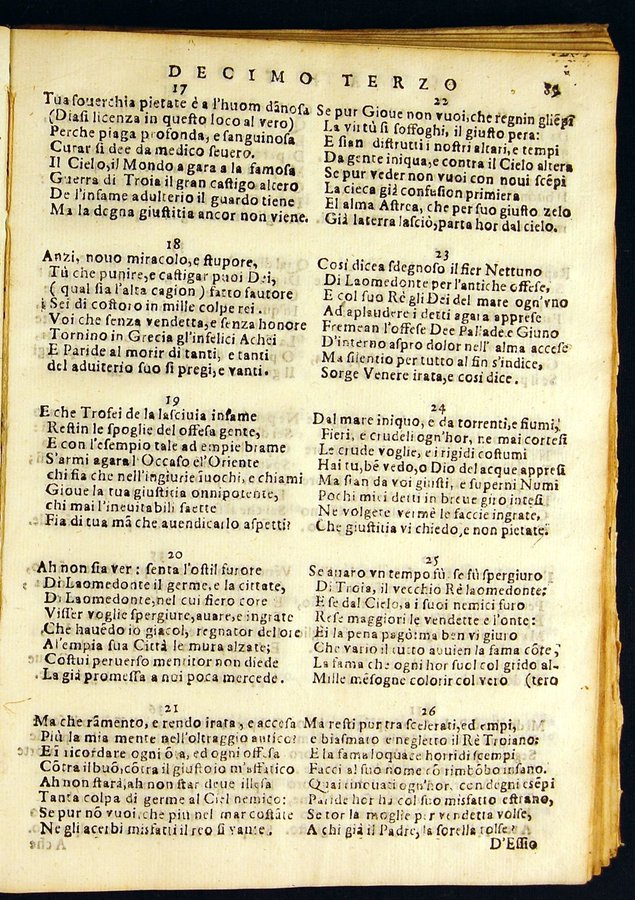 DECIMO TERZO 89
17
Tua souerchia pietate è a l'huom dãnosa
(Diasi licenza in questo loco al vero)
Perche piaga profonda, e sanguinosa
Curar si dee da medico seuero.
Il Cielo, il Mondo a gara a la famosa
Guerra di Troia il gran castigo altero
De l'infame adulterio il guardo tiene
Ma la degna giustitia ancor non viene.
18
Anzi, nouo miracolo, e stupore,
Tù che punire, e castigar puoi Dei,
( qual sia l'alta cagion ) fatto fautore
Sei di costoro in mille colpe rei.
Voi che senza vendetta, e senza honore
Tornino in Grecia gl'infelici Achei
E Paride al morir di tanti, e tanti
del adulterio suo si pregi, e vanti.
19
E che Trofei de la lasciuia infame
Restin le spoglie del offesa gente,
E con l'esempio tale ad empie brame
S'armi a gara l'Occaso e l'Oriente
chi fia che nell'ingiurie inochi, e chiami
Gioue la tua giustitia onnipotente,
chi mai l'ineuitabili saette
Fia di tua mã che auendicarlo aspetti?
20
Ah non sia ver: senta l'ostil furore
Di Laomedonte il germe, e la cittate,
Di Laomedonte, nel cui fiero core
Visser voglie spergiure, auare, e ingrate
Che hauẽdo io giacol, regnator del ore
Al'empia sua Città le mura alzate;
Costui peruerso mentitor non diede
La già promessa a noi poca mercede.
21
Ma che rãmento, e rendo irata, e accesa
Più la mia mente nell'oltraggio antico?
E i ricordare ogni õ a, ed ogni offesa
Cõtra il buõ, cõtra il giusto io m'affatico
Ah non starà, ah non star deue illesa
Tanta colpa di germe al Ciel nemico:
Se pur nõ vuoi, che più nel mar costãte
Ne gli acerbi misfatti il reo si vante.
22
Se pur Gioue non vuoi, che regnin gliẽpi
La virtù si soffoghi, il giusto pera:
E sian distrutti i nostri altari, e tempi
Da gente iniqua, e contra il Cielo altera
Se pur veder non vuoi con noui scẽpi
La cieca già confusion primiera
E l alma Astrea, che per suo giusto zelo
Già la terra lasciò, parta hor dal cielo.
23
Cosi dicea sdegnoso il fier Nettuno
Di Laomedonte per l'antiche offese,
E col suo Rè gli Dei del mare ogn'vno
Ad aplaudere i detti a gara apprese
Fremean l'offese Dee Pallade e Giuno
D'interno aspro dolor nell' alma accese
Ma silentio per tutto al fin s'indice,
Sorge Venere irata, e cosi dice.
24
Dal mare iniquo, e da torrenti, e fiumi,
Fieri, e crudeli ogn'hor, ne mai cortesi
Le crude voglie, e i rigidi costumi
Hai tu, bẽ vedo, o Dio del acque appresi
Ma sian da voi giusti, e superni Numi
Pochi miei detti in breue giro intesi
Ne volgete verme le faccie ingrate,
Che giustitia vi chiedo, e non pietate.
25
Se auaro vn tempo fù, se fù spergiuro
Di Troia, il vecchio Rè laomedonte:
E se dal Cielo, a i suoi nemici furo
Rese maggiori le vendette e l'onte:
Ei la pena pagò: ma ben vi giuro
Che vario il tutto auuien la fama cõte,
La fama che ogni hor suol col grido al-
Mille mẽsogne colorir col vero (tero
26
Ma resti pur tra scelerati, ed empi,
e biasmato e negletto il Rè Troiano:
E la fama loquace horridi scempi
Facci al suo nome cõ rimbõbo insano.
Quai tinouati ogn'hor, con degni esẽpi
Paride hor ha col suo misfatto estrano,
Se tor la moglie per vendetta volse,
A chi già il Padre, la sorella tolse?
D'Essio